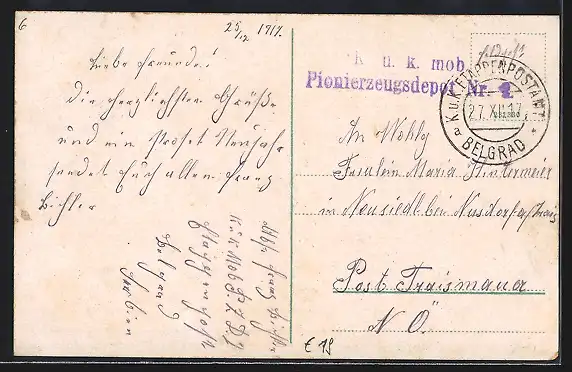 6
25/12 1917.
Liebe Freunde!
Die herzlichsten Grüße
und ein Prosit Neujahr
sendet Euch allen Franz
Bichler
Abs. Franz Bichler
k.u.k. Mob. P. Z. D. 4
Etappenpost
Belgrad
Serbien
K. u. k. mob.
Pionierzeugsdepot Nr. 4.
K.u.K. ETAPPENPOSTAMT
27.XII.17
a
BELGRAD
An Wohlg
Fräulein Maria Hintermeier
in Neusiedl bei Nusdorf a/Trais
Post Traismauer
N. Ö.
€ 19